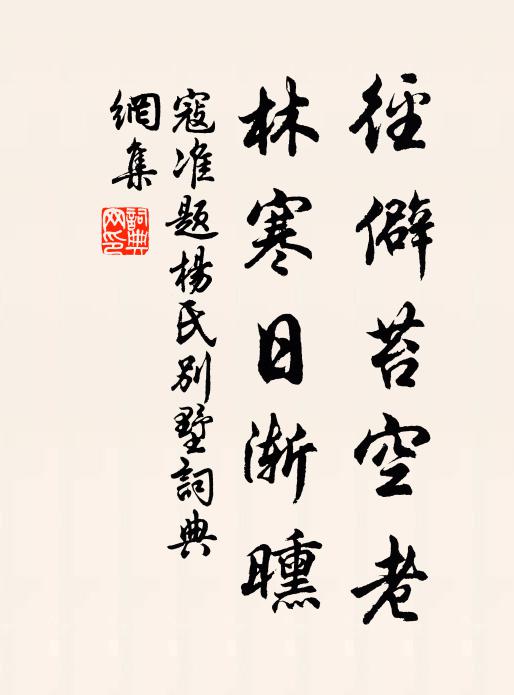 徑僻苔空老
林寒日漸曛
寇准題楊氏別墅詞典
網集
詞典網印